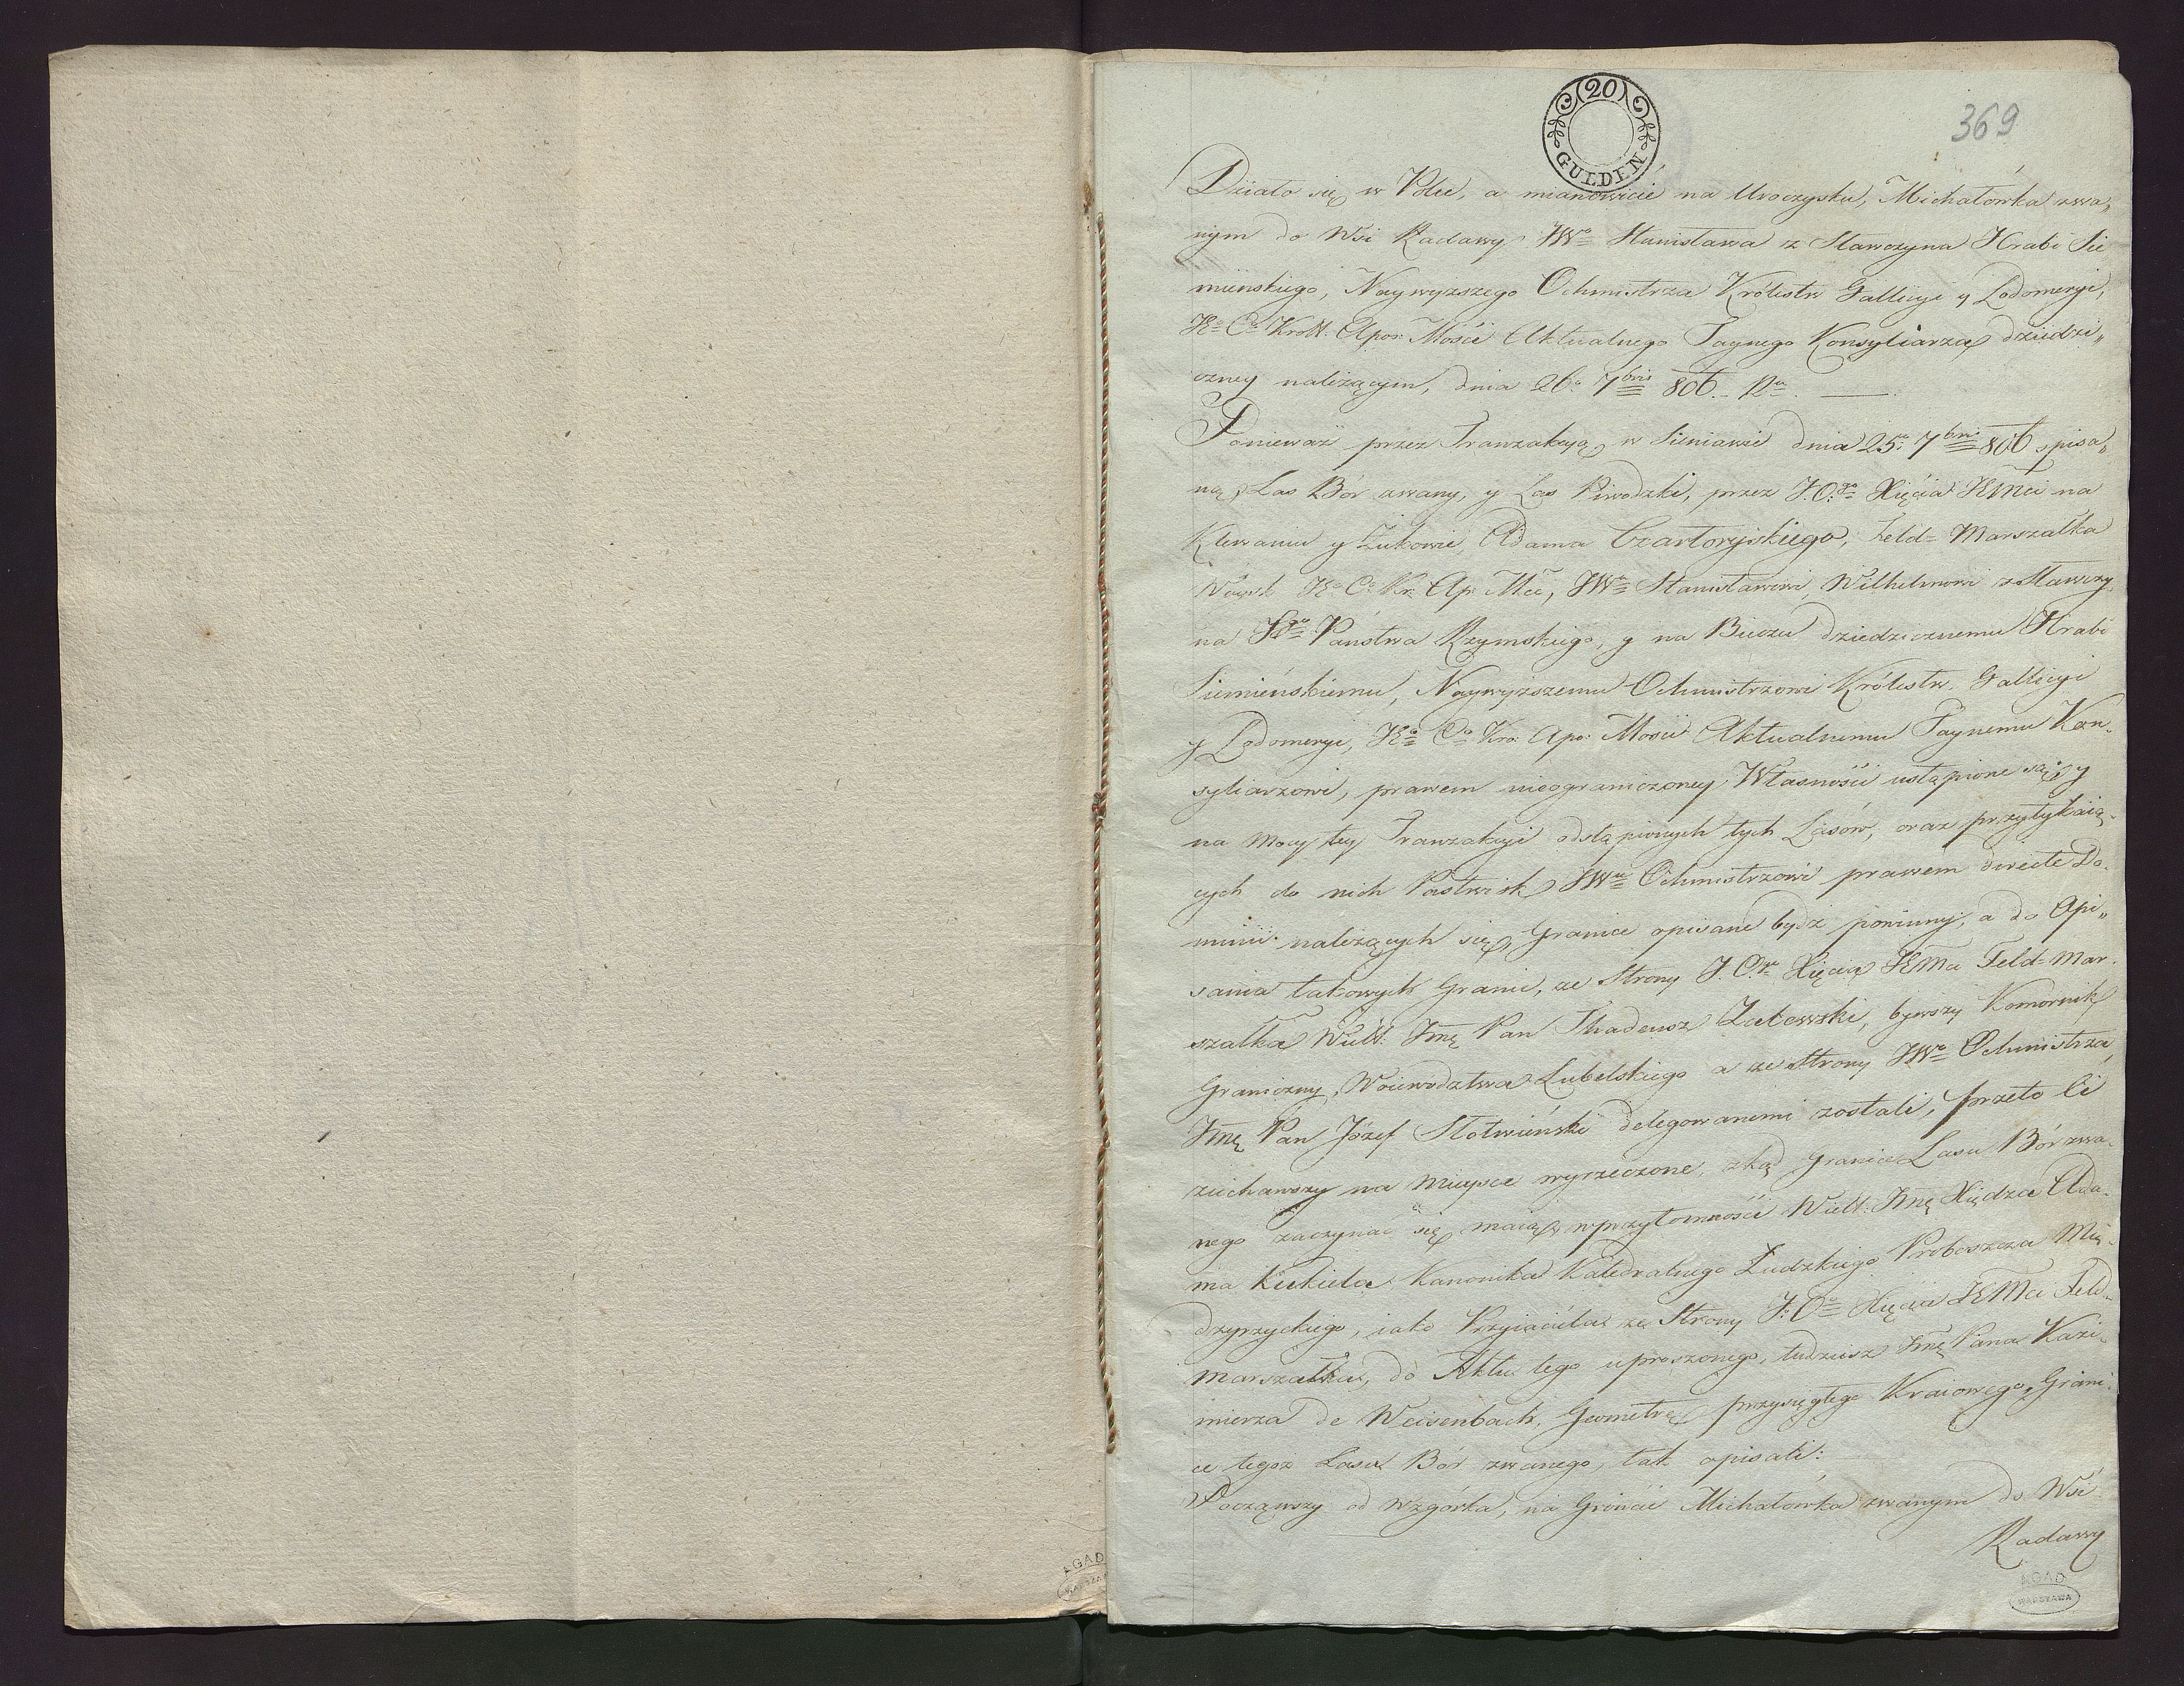 20
GULDEN
369
Działo się w Polu, a mianowicie na Uroczysku, Michałówka zwa„
nym do Wsi Radawy JWo Stanisława z Sławczyna Hrabi Sie
mieńskiego, Naywyższego Ochmistrza Królestw Gallicyi y Lodomeryi,
Ko Co Kroll. Apos: Mości Aktualnego Taynego Konsyliarza dziedzi„
czney należącym, dnia 26o 7bris 806. Ru. —
Ponieważ przez Tranzakcyą w Sieniawie dnia 25o 7bris 806 spisa„
ną Las Bór zwany, y Las Piwodzki, przez J.O.go Xięcia JEMci na
Klewaniu y Żukowie, Adama Czartoryjskiego, Feld= Marszałka
Woysk Ko Co Kr: Ap: Mci, JWu Stanisławowi Wilhelmowi z Sławczy
na Sgo Państwa Rzymskiego, y na Bieczu dziedzicznemu Hrabi
Siemieńskiemu, Naywyższemu Ochmistrzowi Królestw. Gallicyi
y Lodomeryi, Ko Co Kro: Apo: Mości Aktualnemu Taynemu Kon„
syliarzowi, prawem nieograniczoney Własności ustąpione są, y
na Mocy tey Tranzakcyi odstąpionych tych Lasów, oraz przytykaią„
cych do nich Pastwisk JWu Ochmistrzowi prawem directe Do„
minii należących się, Granice opisane bydź powinny, a do Opi„
sania takowych Granic, ze Strony J.O.go Xięcia JEMci Feld-Mar„
szałka Wiell: Jmę Pan Thadeusz Zalewski, bywszy Komornik
Graniczny, Woiewodztwa Lubelskiego a ze Strony JWo Ochmistrza,
Jmę Pan Józef Słotwiński delegowanemi zostali, przeto Ci
ziechawszy na mieysce wyrzeczone, zkąd Granice Lasu Bór zwa„
nego zaczynać się maią, w przytomności Wiell: Jmę Xiędza Ada„
ma Kukiela Kanonika Katedralnego Łudzkiego Proboszcza Mię„
dzyrzyckiego, iako Przyiaciela ze Strony J.Oo Xięcia JEMci Feld„
marszałka, do Aktu tego uproszonego, tudziesz Jmę Pana Kazi„
mierza de Weisenbach, Geometrę przysięgłego Kraiowego, Grani„
ce tegoż Lasu Bór zwanego, tak opisali:
Począwszy od wzgórka, na Gruncie Michałówka zwanym do Wsi
Radawy
AGAD
WARSZAWA
AGAD
WARSZAWA